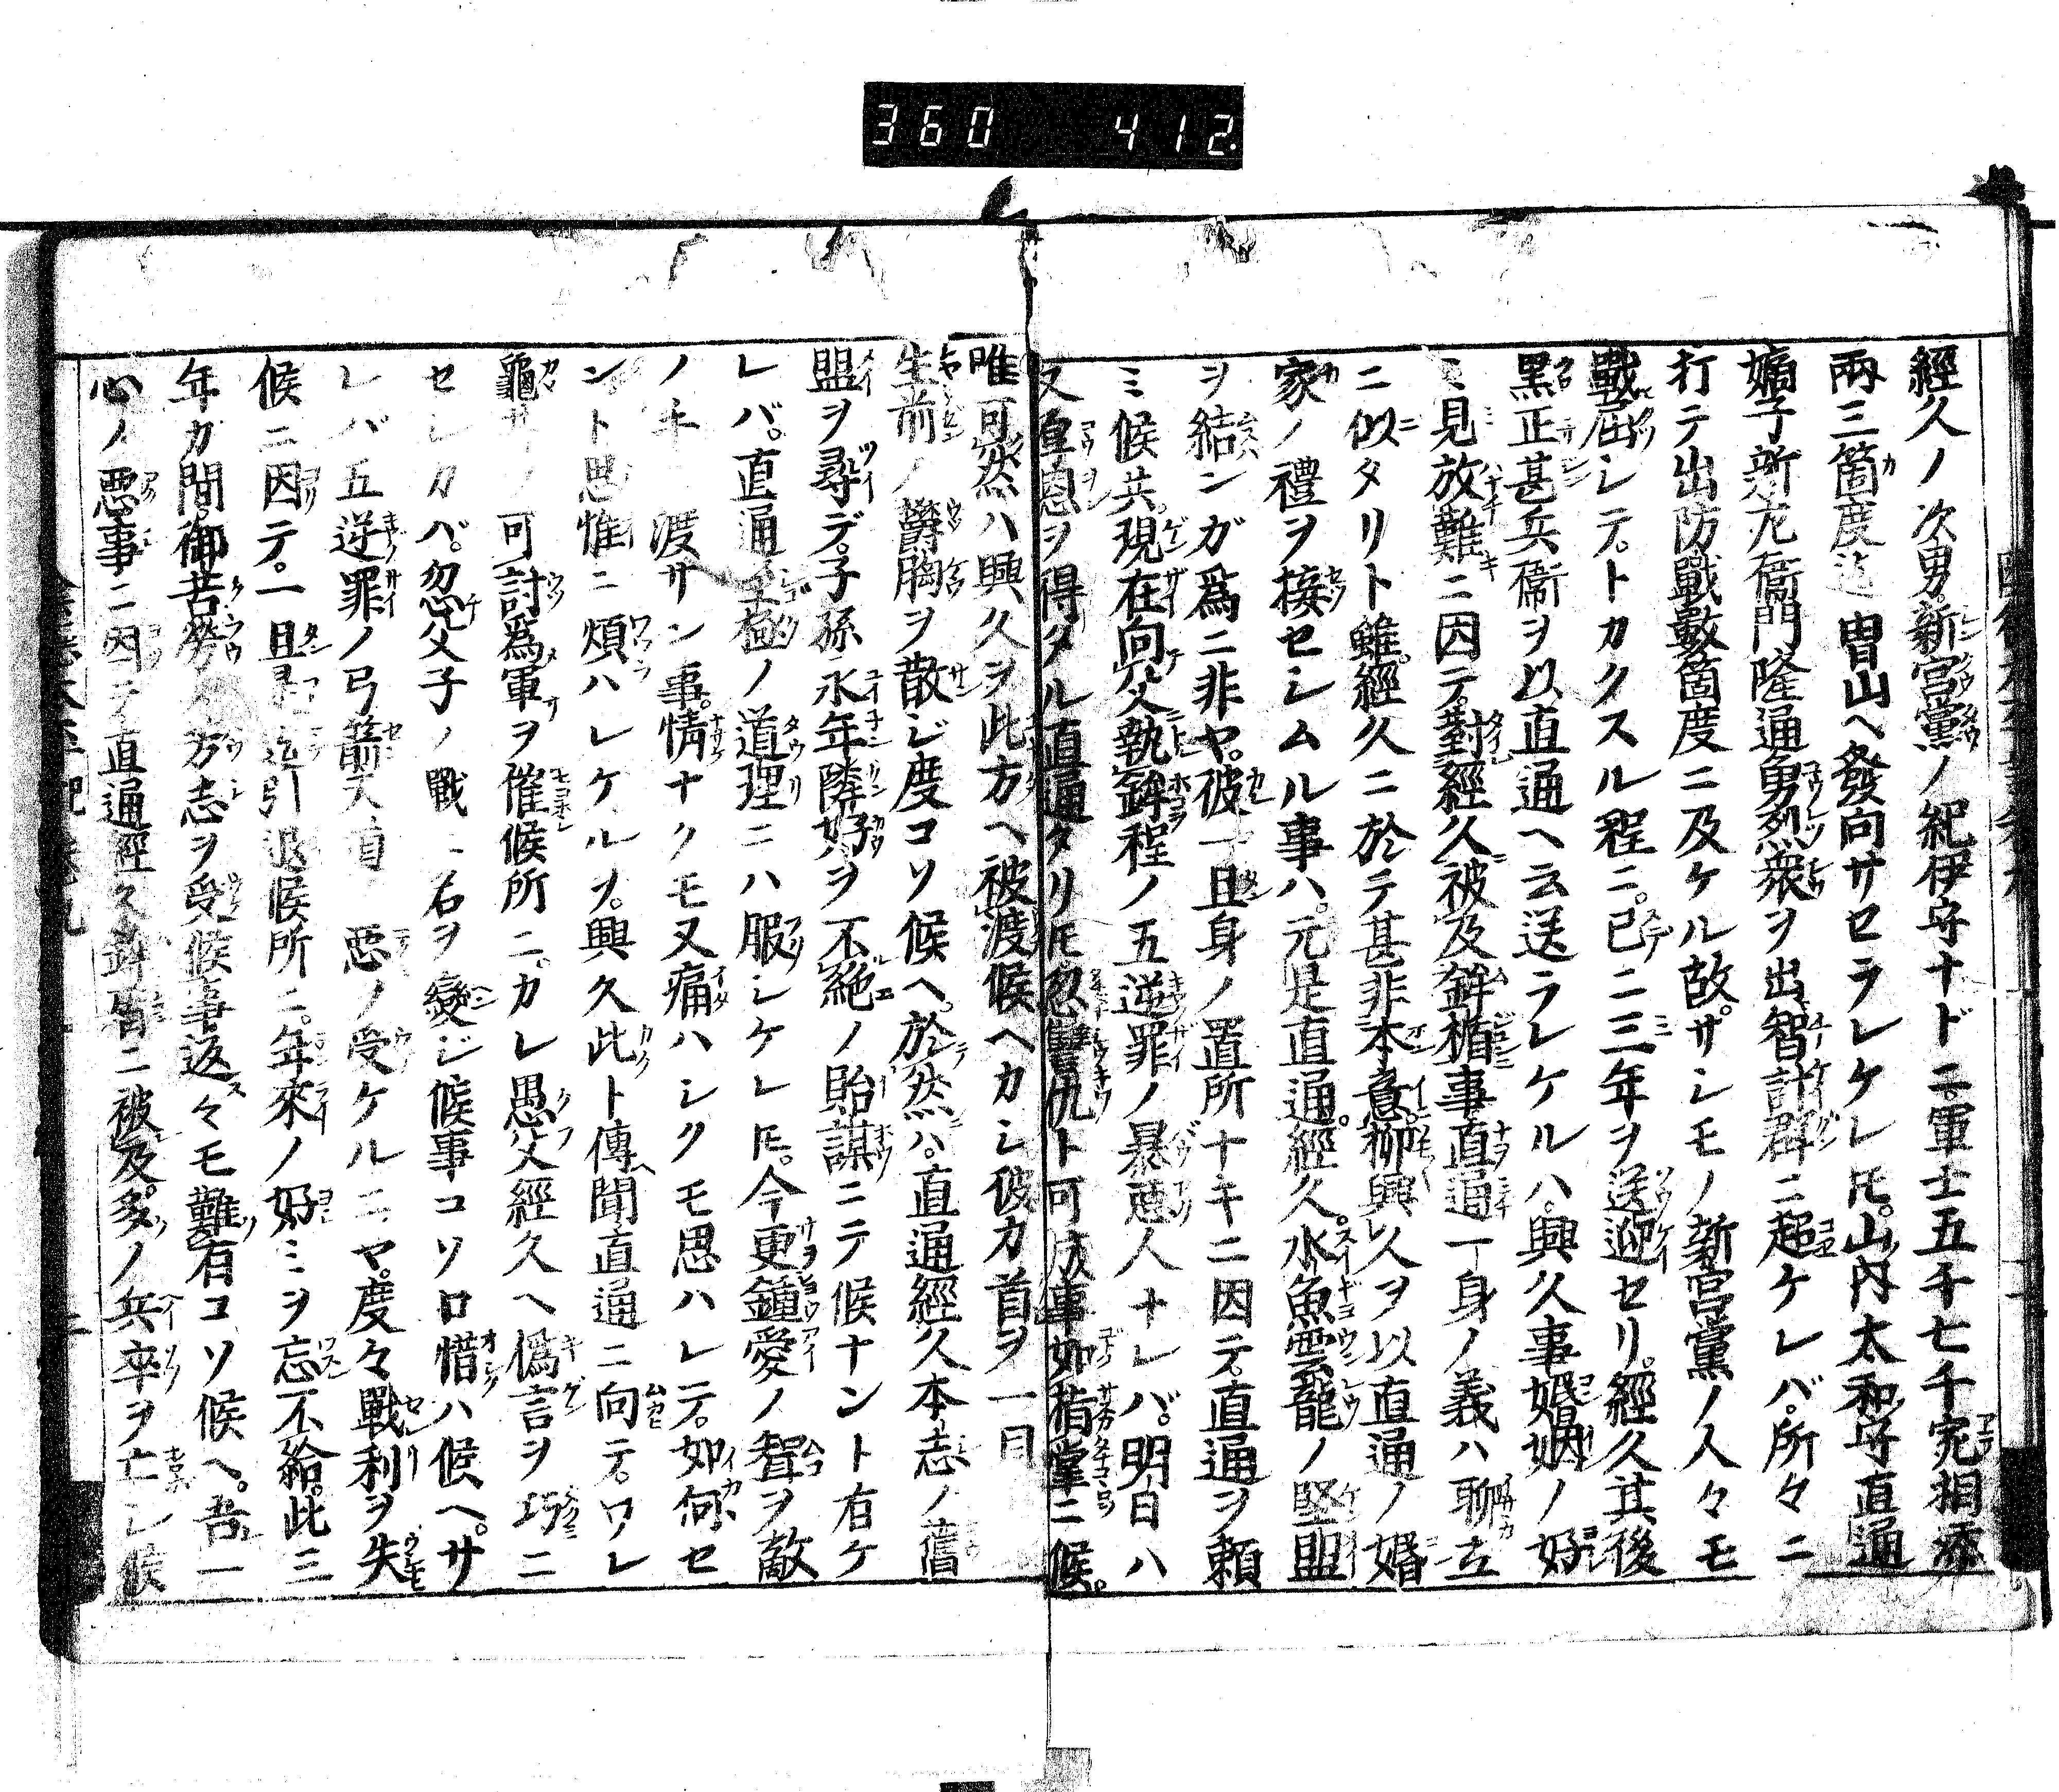 360 412
經久ノ次男新宮黨ノ紀伊守ナドニ軍士五千七千宛相添
兩三箇度迄曽山ヘ發向サセラレケレ𪜈。山内太和守直通
嫡子新左衞門隆通勇烈衆ヲ出智計群ニ超ケレバ。所々ニ
打テ出防戰數箇度ニ及ケル故。サシモノ新宮黨ノ人々モ
戰屈シテ。トカクスル程ニ。已ニ三年ヲ送迎セリ。經久其後
黒正甚兵衞ヲ以直通ヘ云送ラレケルハ。興久事婚姻ノ好
ミ見放難ニ因テ。對經久被及鉾楯事直通一身ノ義ハ聊
ニ似タリト雖。經久ニ於テ甚非本意。抑興久ヲ以直通ノ婚
家ノ禮ヲ接セシムル事ハ。元是直通。經久。水魚雲龍ノ堅盟
ヲ結ンガ爲ニ非ヤ。彼一旦身ノ置所ナキニ因テ。直通ヲ頼
ミ候共。現在向父執鉾程ノ五逆罪ノ暴惡人ナレバ。明日ハ
又重恩ヲ得タル直通タリ𪜈忽讐仇ト可成事如指掌ニ候。
唯可然ハ興久ヲ此方ヘ被渡候ヘカシ彼カ首ヲ一目
生前ノ欝胸ヲ散ジ度コソ候ヘ。於然ハ。直通經久本志ノ舊
盟ヲ尋デ。子孫永年隣好ヲ不絶ノ貽謀ニテ候ナント有ケ
レバ。直通至極ノ道理ニハ服シケレ𪜈。今更鐘愛ノ聟ヲ敵
ノ手 渡サン事。情ナクモ又痛ハシクモ思ハレテ。如何セ
ント思惟ニ煩ハレケルヲ。興久此ト傳聞直通ニ向テ。ワレ
龜 ノ可討爲軍ヲ催候所ニ。カレ愚父經久ヘ僞言ヲ巧ニ
セシカバ。忽父子ノ戰ニ名ヲ變ジ候事コソ口惜ハ候ヘ。サ
レバ五逆罪ノ弓箭天 惡ノ受ケルニヤ。度々戰利ヲ失
候ニ因テ。一旦 迄引退候所ニ。年來ノ好ミヲ忘不給。此三
年カ間。御苦勞 芳志ヲ受候事返々モ難有コソ候ヘ。吾一
心ノ惡事ニ因テ直通經久鉾楯ニ被及。多ノ兵卒ヲ亡シ候